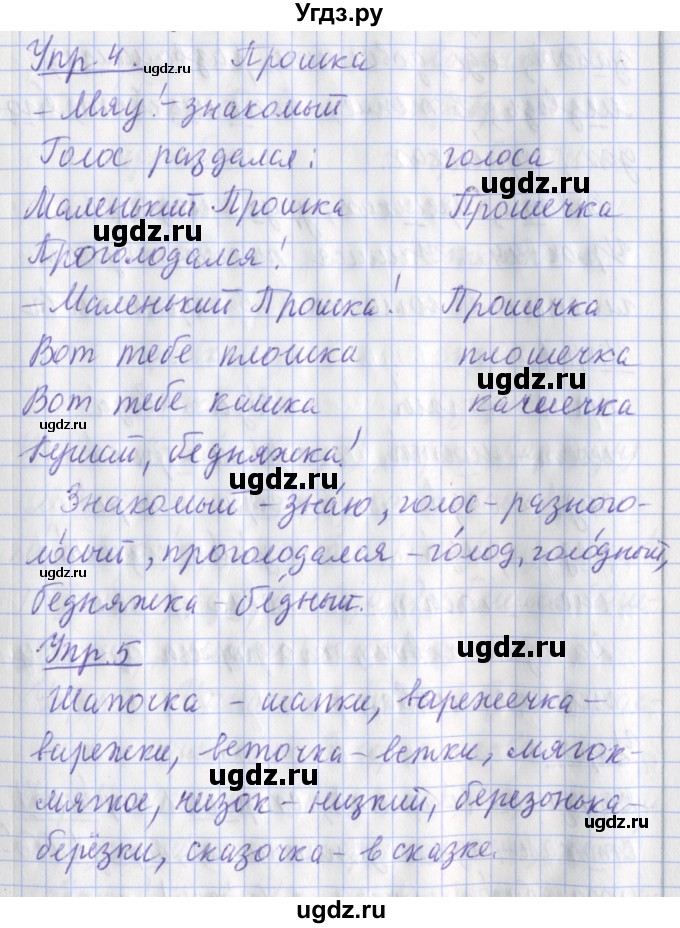 Угдз.ру
Упр. 4. Прошка
ugdz.ru
- Мяу! - знакомый
Голос раздался: голоса
ugdz.ru
Маленький Прошка Прошечка
ugdz.ru
Проголодался!
- Маленький Прошка! Прошечка
Вот тебе плошка плошечка
ugdz.ru
Вот тебе кашка кашечка
ugdz.ru
Кушай, бедняжка!
ugdz.ru
Знакомый - зна́ю, голос - разного-
ло́сый, проголодалая - го́лод, голо́дный,
ugdz.ru
бедняжка - бе́дный.
Упр. 5
ugdz.ru
Шапочка - шапки, варежечка -
варежки, веточка - ветки, мягок -
ugdz.ru
мягкое, низок - низкий, березонька -
ugdz.ru
берёзки, сказочка - в сказке.
ugdz.ru